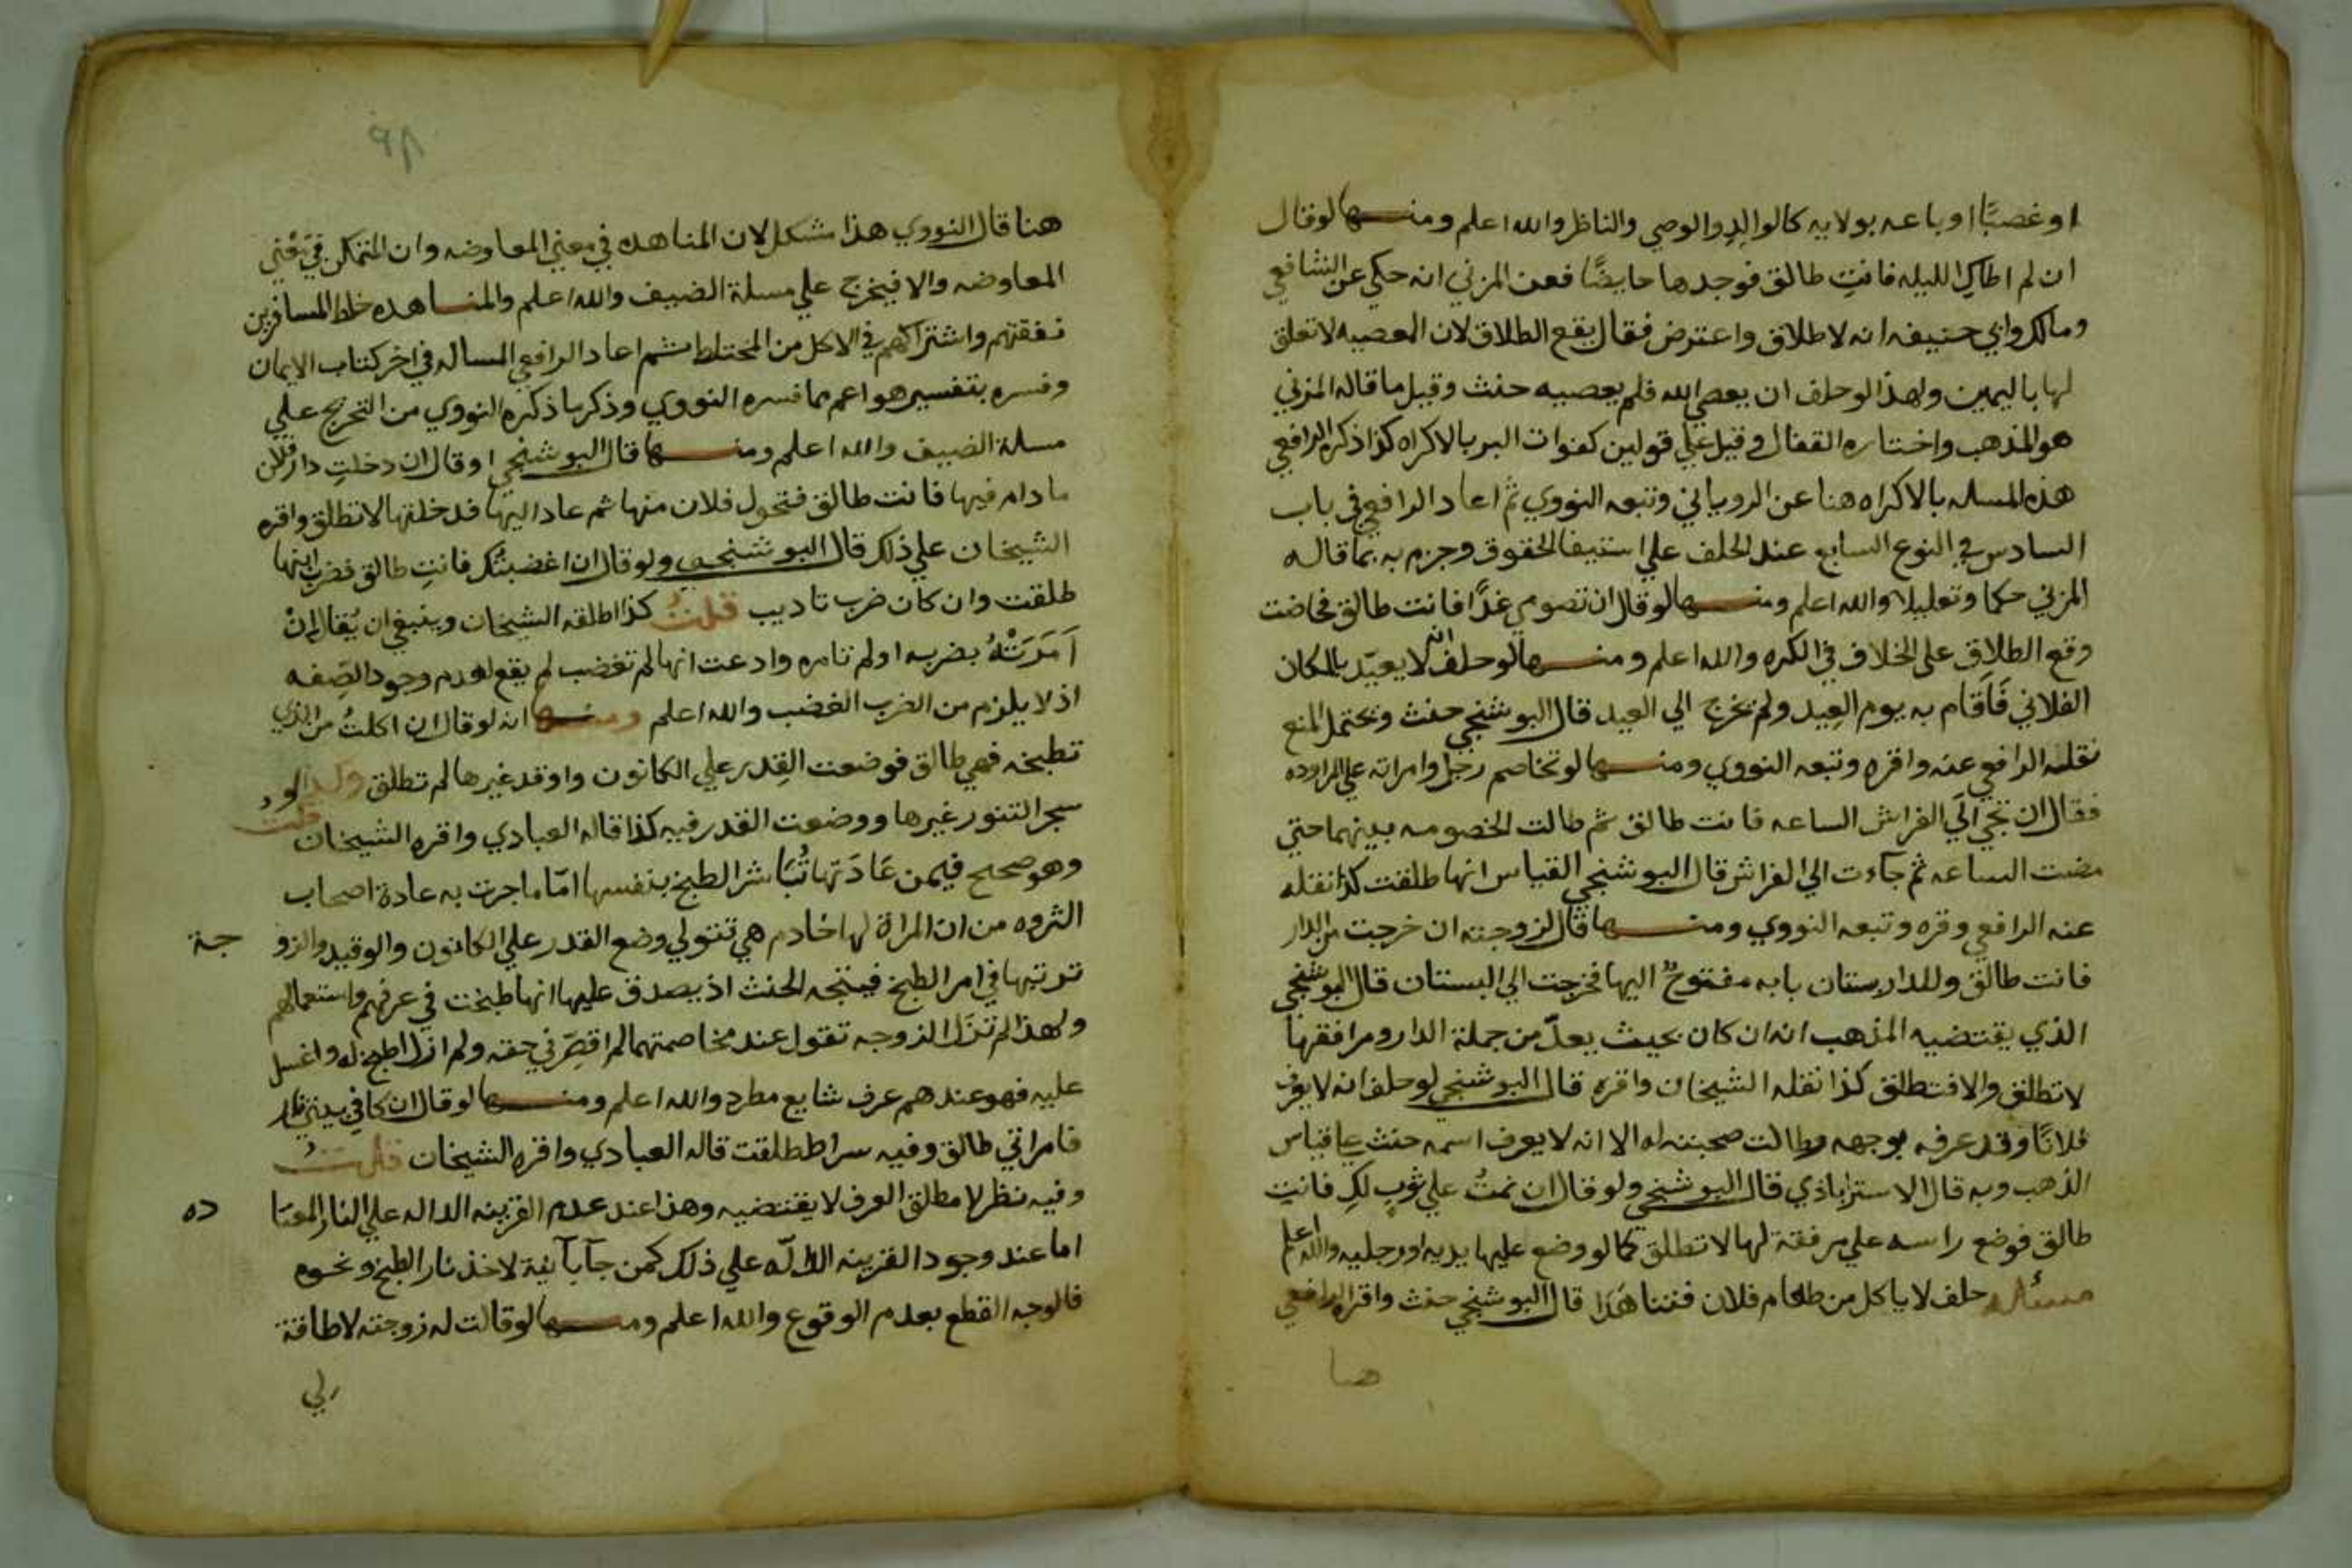 او غصبًا او باعه بولايه كالوالد والوصي والناظر والله اعلم ومنها لو قال
ان لم اطاك الليله فانت طالق فوجدها حايضًا فعن المزني انه حكي عن الشافعي
ومالك وابي حنيفه انه لا طلاق واعترض فقال يقع الطلاق لان المعصيه لا تعلق
لها باليمين ولهذا لو حلف ان يعصي الله فلم يعصيه حنث وقيل ما قاله المزني
هو المذهب واختاره القفال وقيل علي قولين كفوات البر بالاكراه كذا ذكره الرافعي
هذه المسله بالاكراه هنا عن الروياني وتبعه النووي ثم اعاد الرافعي في باب
السادس في النوع السابع عند الحلف علي استيفا الحقوق وجزم به بما قاله
المزني حكما وتعليلا والله اعلم ومنها لو قال ان تصومي غدًا فانت طالق فحاضت
وقع الطلاق علي الخلاف في الكره والله اعلم ومنها لو حلف انه لا يعيّد بالمكان
الفلاني فَاَقام به يوم العِيد ولم يخرج الي العيد قال البوشنجي حنث ويحتمل المنع
نقله الرافعي عنه واقره وتبعه النووي ومنها لو تخاصم رجل وامراته علي المراوده
فقال ان تجي الَي الفراش الساعه فانت طالق ثم طالت الخصومه بينهما حتي
مضت الساعه ثم جآءت الي الفراش قال البوشنجي القياس انها طلقت كذا نقله
عنه الرافعي وقره وتبعه النووي ومنها قال لزوجته ان خرجت من الدار
فانت طالق وللدار بستان بابه مفتوحٌ اليها فخرجت الي البستان قال البوشنجي
الذي يقتضيه المذهب انه ان كان بحيث يعدّ من جملة الدار ومرافقها
لا تطلق والا فتطلق كذا نقله الشيخان واقره قال البوشنجي لو حلف انه لا يعرف
فلانًا وقد عرفه بوجهه وطالت صحبته له الا انه لا يعرف اسمه حنث علي قياس
الذهب وبه قال الاستراباذي قال البوشنجي ولو قال ان نمتُ علي ثوبٍ لكِ فانتِ
طالق فوضع راسه علي مرفقة لها لا تطلق كما لو وضع عليها يديه او رجليه والله اعلم
مسئله حلف لا ياكل من طعام فلان فتناهَدَا قال البوشنجي حنث واقره الرافعي
هنا
٩٨
هنا قال النووي هذا مشكل لان المناهده في معني المعاوضه وان لم تكن في معني
المعاوضه والا فيخرج علي مسلة الضيف والله اعلم والمناهده خلط المسافرين
نفقتهم واشتراكهم في الاكل من المختلط ثم اعاد الرافعي المساله في اخر كتاب الايمان
وفسره بتفسير هو اعم مما فسره النووي وذكر ما ذكره النووي من التخريج علي
مسلة الضيف والله اعلم ومنها قال البوشنجي او قال ان دخلتِ دار فلان
ما دام فيها فانت طالق فتحول فلان منها ثم عاد اليها فدخلتها لا تطلق واقره
الشيخان علي ذلك قال البوشنجي ولو قال ان اغضبتُك فانتِ طالق فضرب ابنها
طلقت وان كان ضرب تاديب قلتُ كذا اطلقه الشيخان وينبغي ان يُقال انْ
اَمَرَتْهُ بضربه او لم تامره وادعت انها لم تغضب لم يقع لعدم وجود الصِفه
اذ لا يلزم من الضرب الغضب والله اعلم ومنها انه لو قال ان اكلتُ من الذي
تطبخه فهي طالق فوضعت القِدر علي الكانون واوقد غيرها لم تطلق وكذا لو
سجر التنور غيرها ووضعت القدر فيه كذا قاله العبادي واقره الشيخان قلت
وهو صحيح فيمن عَادَتها تُبَاشر الطبخ بنفسها امّا ما جرت به عادة اصحاب
الثروه من ان المراة لها خادم هي تتولي وضع القدر علي الكانون والوقيد والزوجة
ترتبها في امر الطبخ فيتجه الحنث اذ يصدق عليها انها طبخت في عرفهم واستعمالهم
ولهذا لم تزل الزوجه تقول عند مخاصمتهما لم اقصِّر في حقه ولم ازل اطبخ له واغسل
عليه فهو عندهم عرف شايع مطرد والله اعلم ومنها لو قال ان كان في بيتي نار
فامراتي طالق وفيه سراط طلقت قاله العبادي واقره الشيخان قلتُ
وفيه نظر لا مطلق العرف لا يقتضيه وهذا عند عدم القرينه الداله علي النار المعتاده
اما عند وجود القرينه الدالّه علي ذلك كمن جآ بآنية لاخذ نار الطبخ ونحوه
فالوجه القطع بعدم الوقوع والله اعلم ومنها لو قالت له زوجته لا طاقة
لي